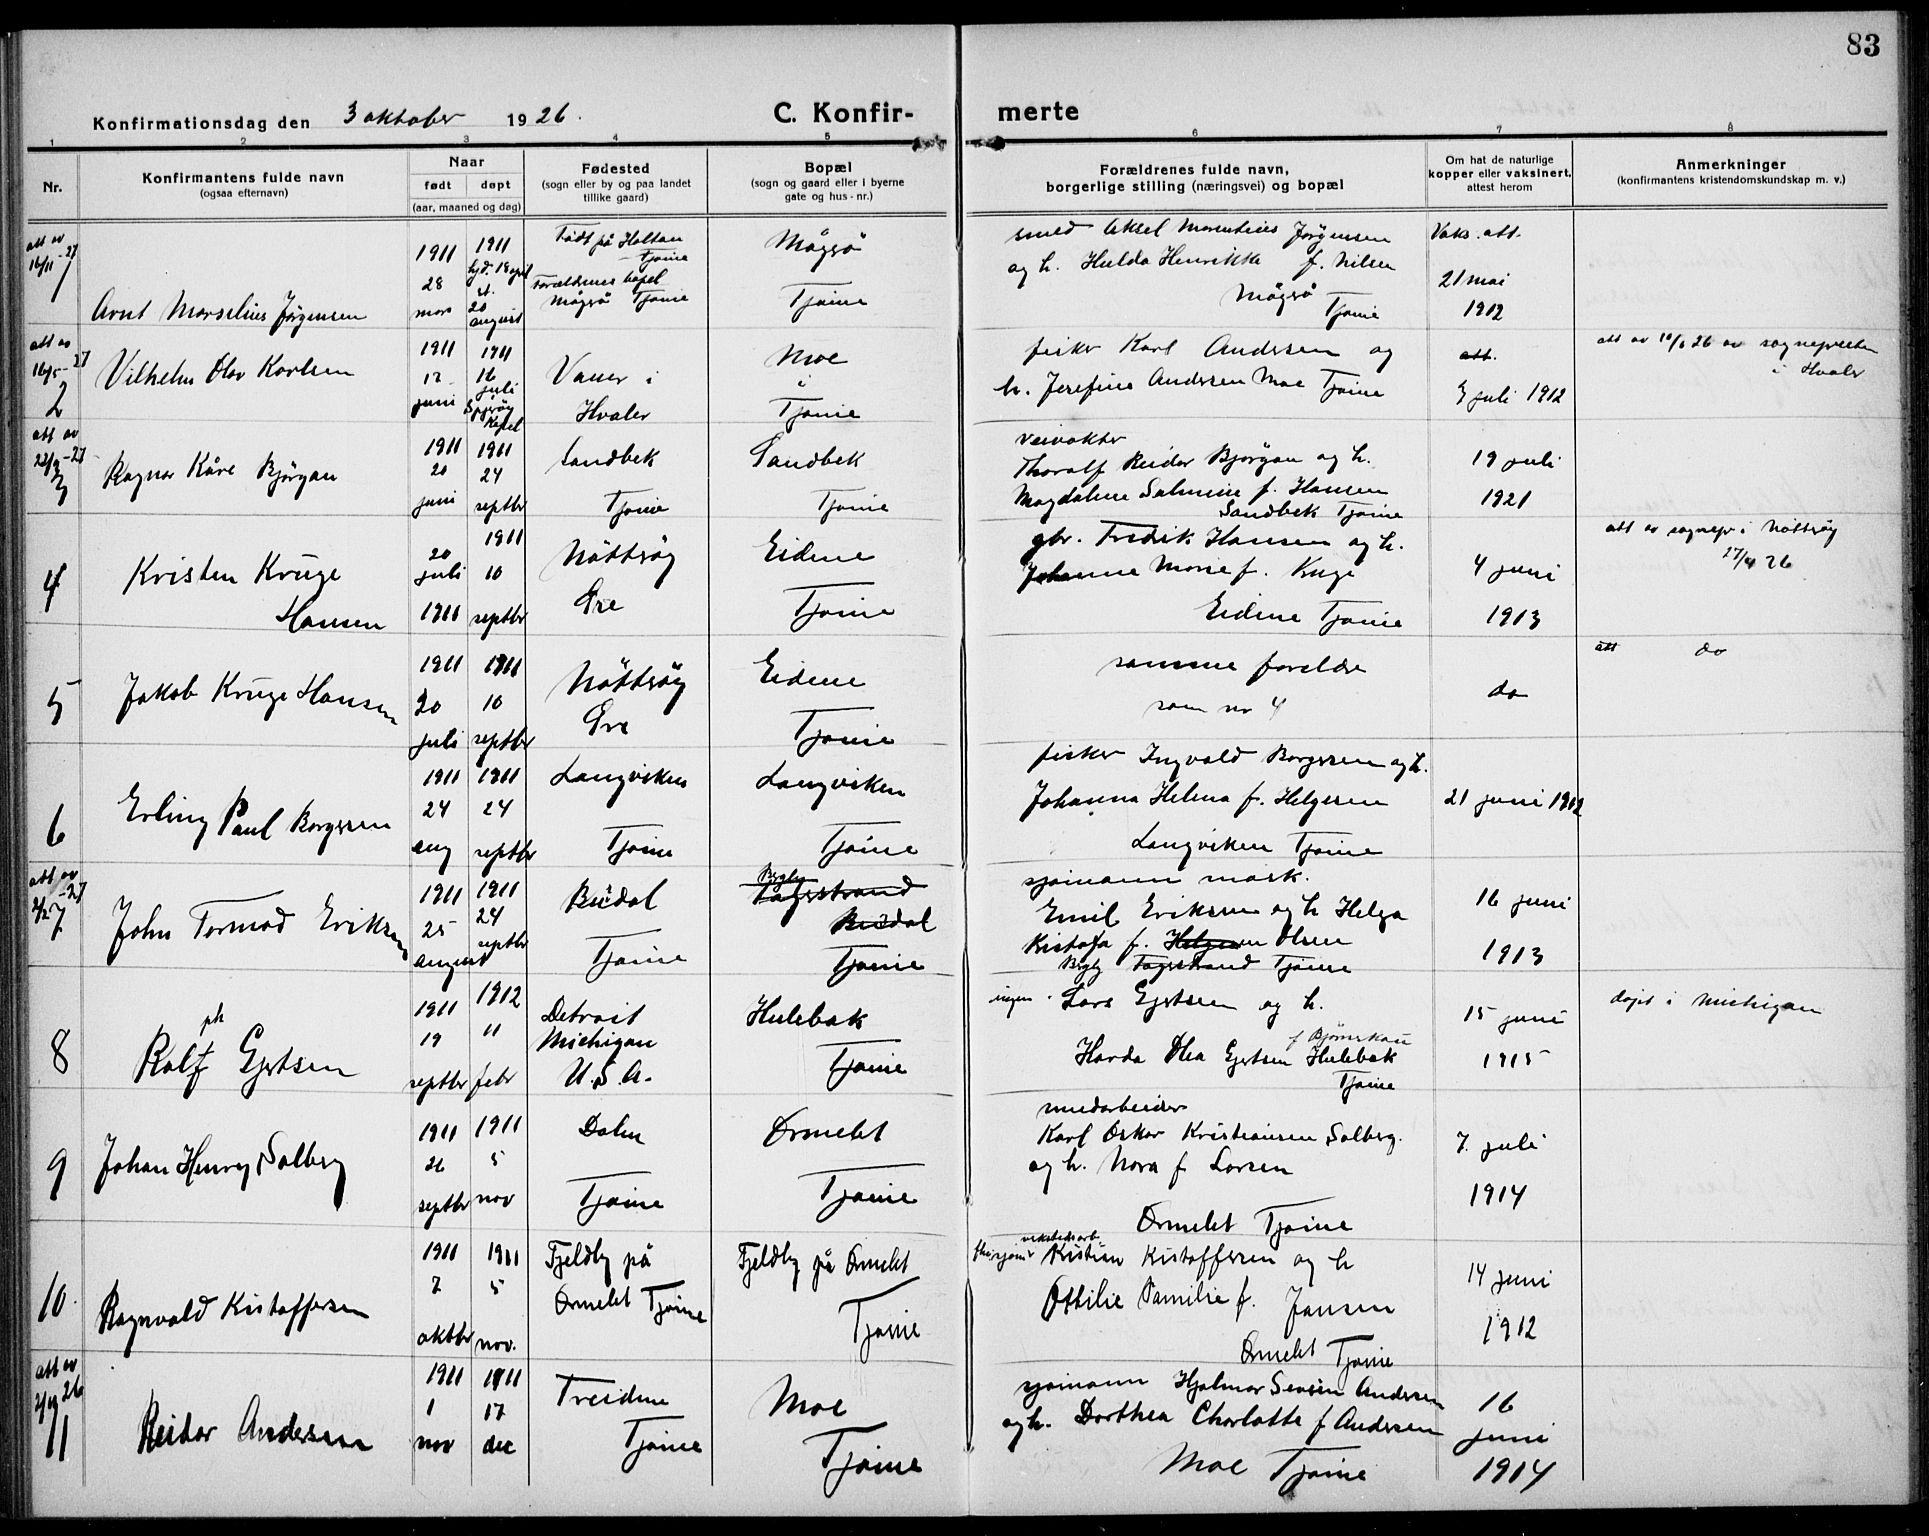 83
Konfirmationsdag den 3 oktober 1926.
C. Konfir-
merte
1 2 3 4 5 6 7 8
Nr.
Konfirmantens fulde navn
(ogsaa efternavn)
Naar
født døpt
(aar, maaned og dag)
Fødested
(sogn eller by og paa landet
tillike gaard)
Bopæl
(sogn og gaard eller i byerne
gate og hus-nr.)
Forældrenes fulde navn,
borgerlige stilling (næringsvei) og bopæl
Om hat de naturlige
kopper eller vaksinert,
attest herom
Anmerkninger
(konfirmantens kristendomskundskap m. v.)
att av
16/11-27
1
Arnt Marselius Jørgensen
1911
28
mars
1911
hjd. 18 april
st.
20
august
Født på Holtan
Tjøme
Forældrenes bopel
Mågerø Tjøme
Mågerø
Tjøme
smed Aksel Marentius Jørgensen
og h. Hulda Henrikke f. Nilsen
Mågerø
Tjøme
Vaks. att.
21 mai
1912
att av
16/5-27
2
Vilhelm Olav Karlsen
1911
12
juni
1911
16
juli
Spjærøy
Kapel
Vauer i
Hvaler
Moe
i
Tjøme
fisker Karl Andersen og
h. Josefine Andersen Moe Tjøme
att.
3 juli 1912
att av 10/6 26 av sognepresten
i Hvaler
att av
22/9-27
3
Ragnar Kåre Bjørgan
1911
20
juni
1911
24
septbr
Sandbek
Tjøme
Sandbek
Tjøme
veivokter
Thoralf Reidar Bjørgan og h.
Magdalene Salmine f. Hansen
Sandbek Tjøme
19 juli
1921
4
Kristen Kruge
Hansen
20
juli
1911
1911
10
septbr
Nøtterøy
Øre
Eidene
Tjøme
gbr. Fredrik Hansen og h.
Johanne Marie f. Kruge
Eidene Tjøme
4 juni
1913
att av sognepr i Nøtterøy
27/4 26
5
Jakob Kruge Hansen
1911
20
juli
1911
10
septbr
Nøtterøy
Øre
Eidene
Tjøme
samme foreldre
som nr 4
do
att do
6
Erling Paul Borgersen
1911
24
aug
1911
24
septbr
Langviken
Tjøme
Langviken
Tjøme
fisker Ingvald Borgersen og h.
Johanna Helena f. Helgesen
Langviken Tjøme
21 juni 1912
att av
2/2-27
7
John Tormod Eriksen
1911
25
august
1911
24
septbr
Budal
Tjøme
Bergly
Fagerstrand
Budal
Tjøme
sjømann mask.
Emil Eriksen og h Helga
Kristofa f. Helgesen Olsen
Bergly Fagerstrand Tjøme
16 juni
1913
8
ph
Ralf Gjertsen
1911
19
septbr
1912
11
febr
Detroit
Michigan
U.S.A.
Hulebak
Tjøme
ingen. Lars Gjertsen og h.
f Bjørnskau
Harda Thea Gjertsen Hulebak
Tjøme
15 juni
1915
døpt i Michigan
9
Johan Henry Solberg
1911
26
septbr
1911
5
nov
Dalen
Tjøme
Ormelet
Tjøme
murarbeider
Karl Oskar Kristiansen Solberg.
og h. Nora f Larsen
Ormelet Tjøme
7. juli
1914
10
Ragnvald Kristoffersen
1911
7
oktbr
1911
5
nov.
Fjeldby på
Ormelet Tjøme
Fjeldby på Ormelet
Tjøme
verkstedsarb
Kristian Kristoffersen og h
Ottilie Pamilie f. Jansen
Ormelet Tjøme
14 juni
1912
att av
26
11
Reidar Andersen
1911
1
nov
1911
17
dec
Treidene
Tjøme
Moe
Tjøme
sjømann Hjalmar Severin Andersen
og h. Dorthea Charlotte f Andersen
Moe Tjøme
16
juni
1914